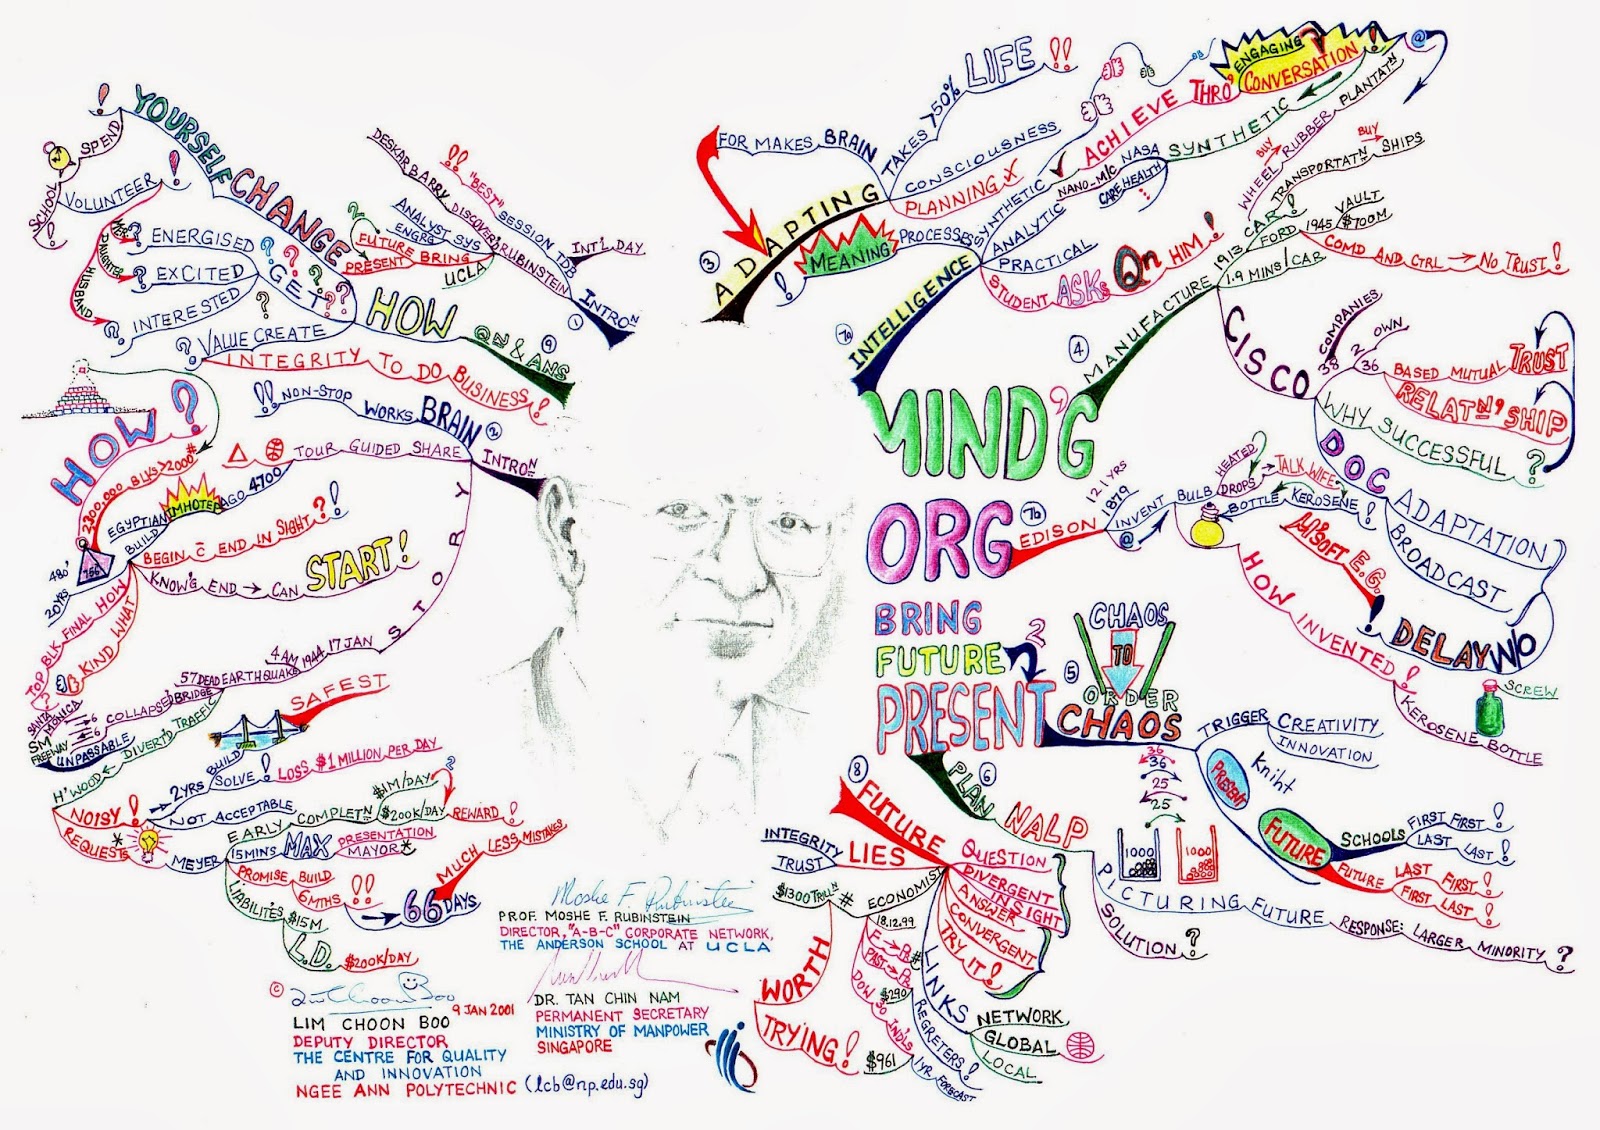 MIND'G
ORG
BRING
FUTURE
2
PRESENT
1
INTRON
INT'L DAY
"BEST" SESSION TDB
DESKAR BARRY DISCOVER RUBINSTEIN
UCLA
ANALYST SYS
ENGRG
FUTURE BRING
PRESENT
2
INTRON
2
BRAIN
WORKS
NON-STOP
!!
STORY
TOUR GUIDED SHARE
4700
AGO
IMHOTEP
EGYPTIAN
BUILD
HOW?
2300,000 BLKS > 2000#
756
480'
20YRS
TOP BLK FINAL HOW
KIND WHAT
BEGIN C END IN SIGHT?!
KNOW'G END → CAN
START!
17 JAN
1944
4 AM
EARTHQUAKE
57 DEAD
BRIDGE
COLLAPSED
SANTA
MONICA
SM
FREEWAY
UNPASSABLE
6
6
TRAFFIC
DIVERT'D
H'WOOD
NOISY!
REQUESTS
SAFEST
BUILD
2YRS
SOLVE!
LOSS $1 MILLION PER DAY
NOT ACCEPTABLE
MEYER
EARLY
COMPLETN
$1M/DAY
$200K/DAY
REWARD!
15MINS
MAX
PRESENTATION
MAYOR
PROMISE BUILD
6MTHS
!!
66 DAYS
MUCH LESS MISTAKES
LIABILITIES
$15M
L.D.
$200K/DAY
3
ADAPTING
FOR MAKES BRAIN
TAKES >50%
LIFE!!
CONSCIOUSNESS
PLANNING X
MEANING
!
PROCESSES
7a
INTELLIGENCE
SYNTHETIC
ACHIEVE THRO'
ENGAGING
CONVERSATION!
SYNTHETIC
NASA
NANO-M/C
CARE HEALTH
ANALYTIC
PRACTICAL
STUDENT ASKS QN HIM!
4
MANUFACTURE
1913
CAR
!
WHEEL
BUY
RUBBER
PLANTATN
@
TRANSPORTATN
BUY
SHIPS
1.9 MINS/CAR
FORD
1945
VAULT
$700M
COMD AND CTRL → NO TRUST!
CISCO
38
COMPANIES
2
OWN
36
BASED MUTUAL TRUST
RELATN'SHIP
WHY SUCCESSFUL?
DOC
ADAPTATION
BROADCAST
W/O
DELAY
!
M'SOFT E.G.
7b
EDISON
121 YRS
1879
@
INVENT
BULB
DROPS
HEATED
TALK WIFE
BOTTLE
KEROSENE!
HOW INVENTED!
KEROSENE BOTTLE
SCREW
5
CHAOS
TO
ORDER
CHAOS
TRIGGER
CREATIVITY
INNOVATION
PRESENT
Kniht
FUTURE
SCHOOLS
FIRST FIRST!
LAST LAST!
FUTURE
LAST FIRST!
FIRST LAST!
6
PLAN
NALP
36
36
25
25
1000
1000
PICTURING FUTURE
RESPONSE: LARGER MINORITY?
SOLUTION?
8
FUTURE
LIES
INTEGRITY
TRUST
QUESTION
DIVERGENT
INSIGHT
ANSWER
CONVERGENT
TRY IT!
ECONOMIST
#
$1300 TRILLN
WORTH
TRYING!
18.12.99
F → PR
PAST → PR
#
$290
DOW 30 IND'LS
$961
LINKS
NETWORK
GLOBAL
LOCAL
REGRETERS!
1YR FORECAST
9
QN & ANS
HOW
CHANGE
YOURSELF
!
SPEND
VOLUNTEER
!
SCHOOL
!
GET
ENERGISED
EXCITED
INTERESTED
DAUGHTER
HUSBAND
VALUE CREATE
INTEGRITY TO DO BUSINESS!
Moshe F. Rubinstein
PROF. MOSHE F. RUBINSTEIN
DIRECTOR, "A-B-C" CORPORATE NETWORK,
THE ANDERSON SCHOOL AT UCLA
DR. TAN CHIN NAM
PERMANENT SECRETARY
MINISTRY OF MANPOWER
SINGAPORE
©
9 JAN 2001
LIM CHOON BOO
DEPUTY DIRECTOR
THE CENTRE FOR QUALITY
AND INNOVATION
NGEE ANN POLYTECHNIC (lcb@np.edu.sg)